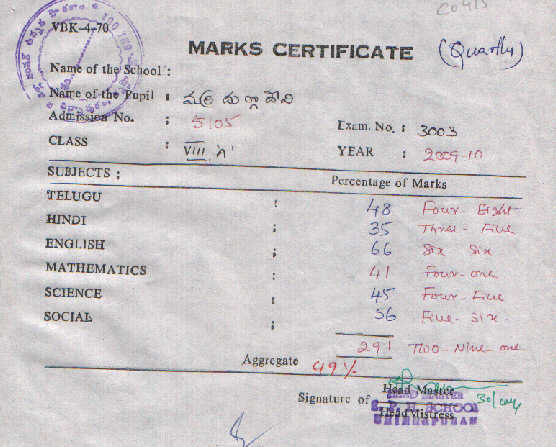 VBK-4-70
MARKS CERTIFICATE (Quartly)
Name of the School :
Name of the Pupil :
Admission No. : 5105 Exam. No. : 3003
CLASS : VIII 'A' YEAR : 2009-10
SUBJECTS : Percentage of Marks
TELUGU : 48 Four - Eight
HINDI : 35 Three - Five
ENGLISH : 66 Six Six
MATHEMATICS : 41 Four - one
SCIENCE : 45 Four - Five
SOCIAL : 56 Five - Six
291 Two - Nine - one
Aggregate 49%
Head Master
Signature of HEAD MASTER
SCHOOL
Head Mistress